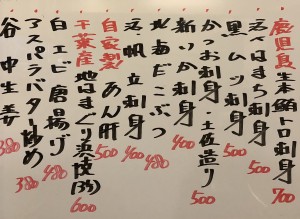 鹿児島生本鮪トロ刺身 700
天然はまち刺身 500
黒ムツ刺身 500
かつお刺身・土佐造り 500
新いか刺身 400
北海だこぶつ 480
活帆立刺身 400
自家製あん肝 500
千葉産地はまぐり浜焼(3ヶ) 600
白エビ唐揚げ 480
アスパラバター炒め 380
谷中生姜 380